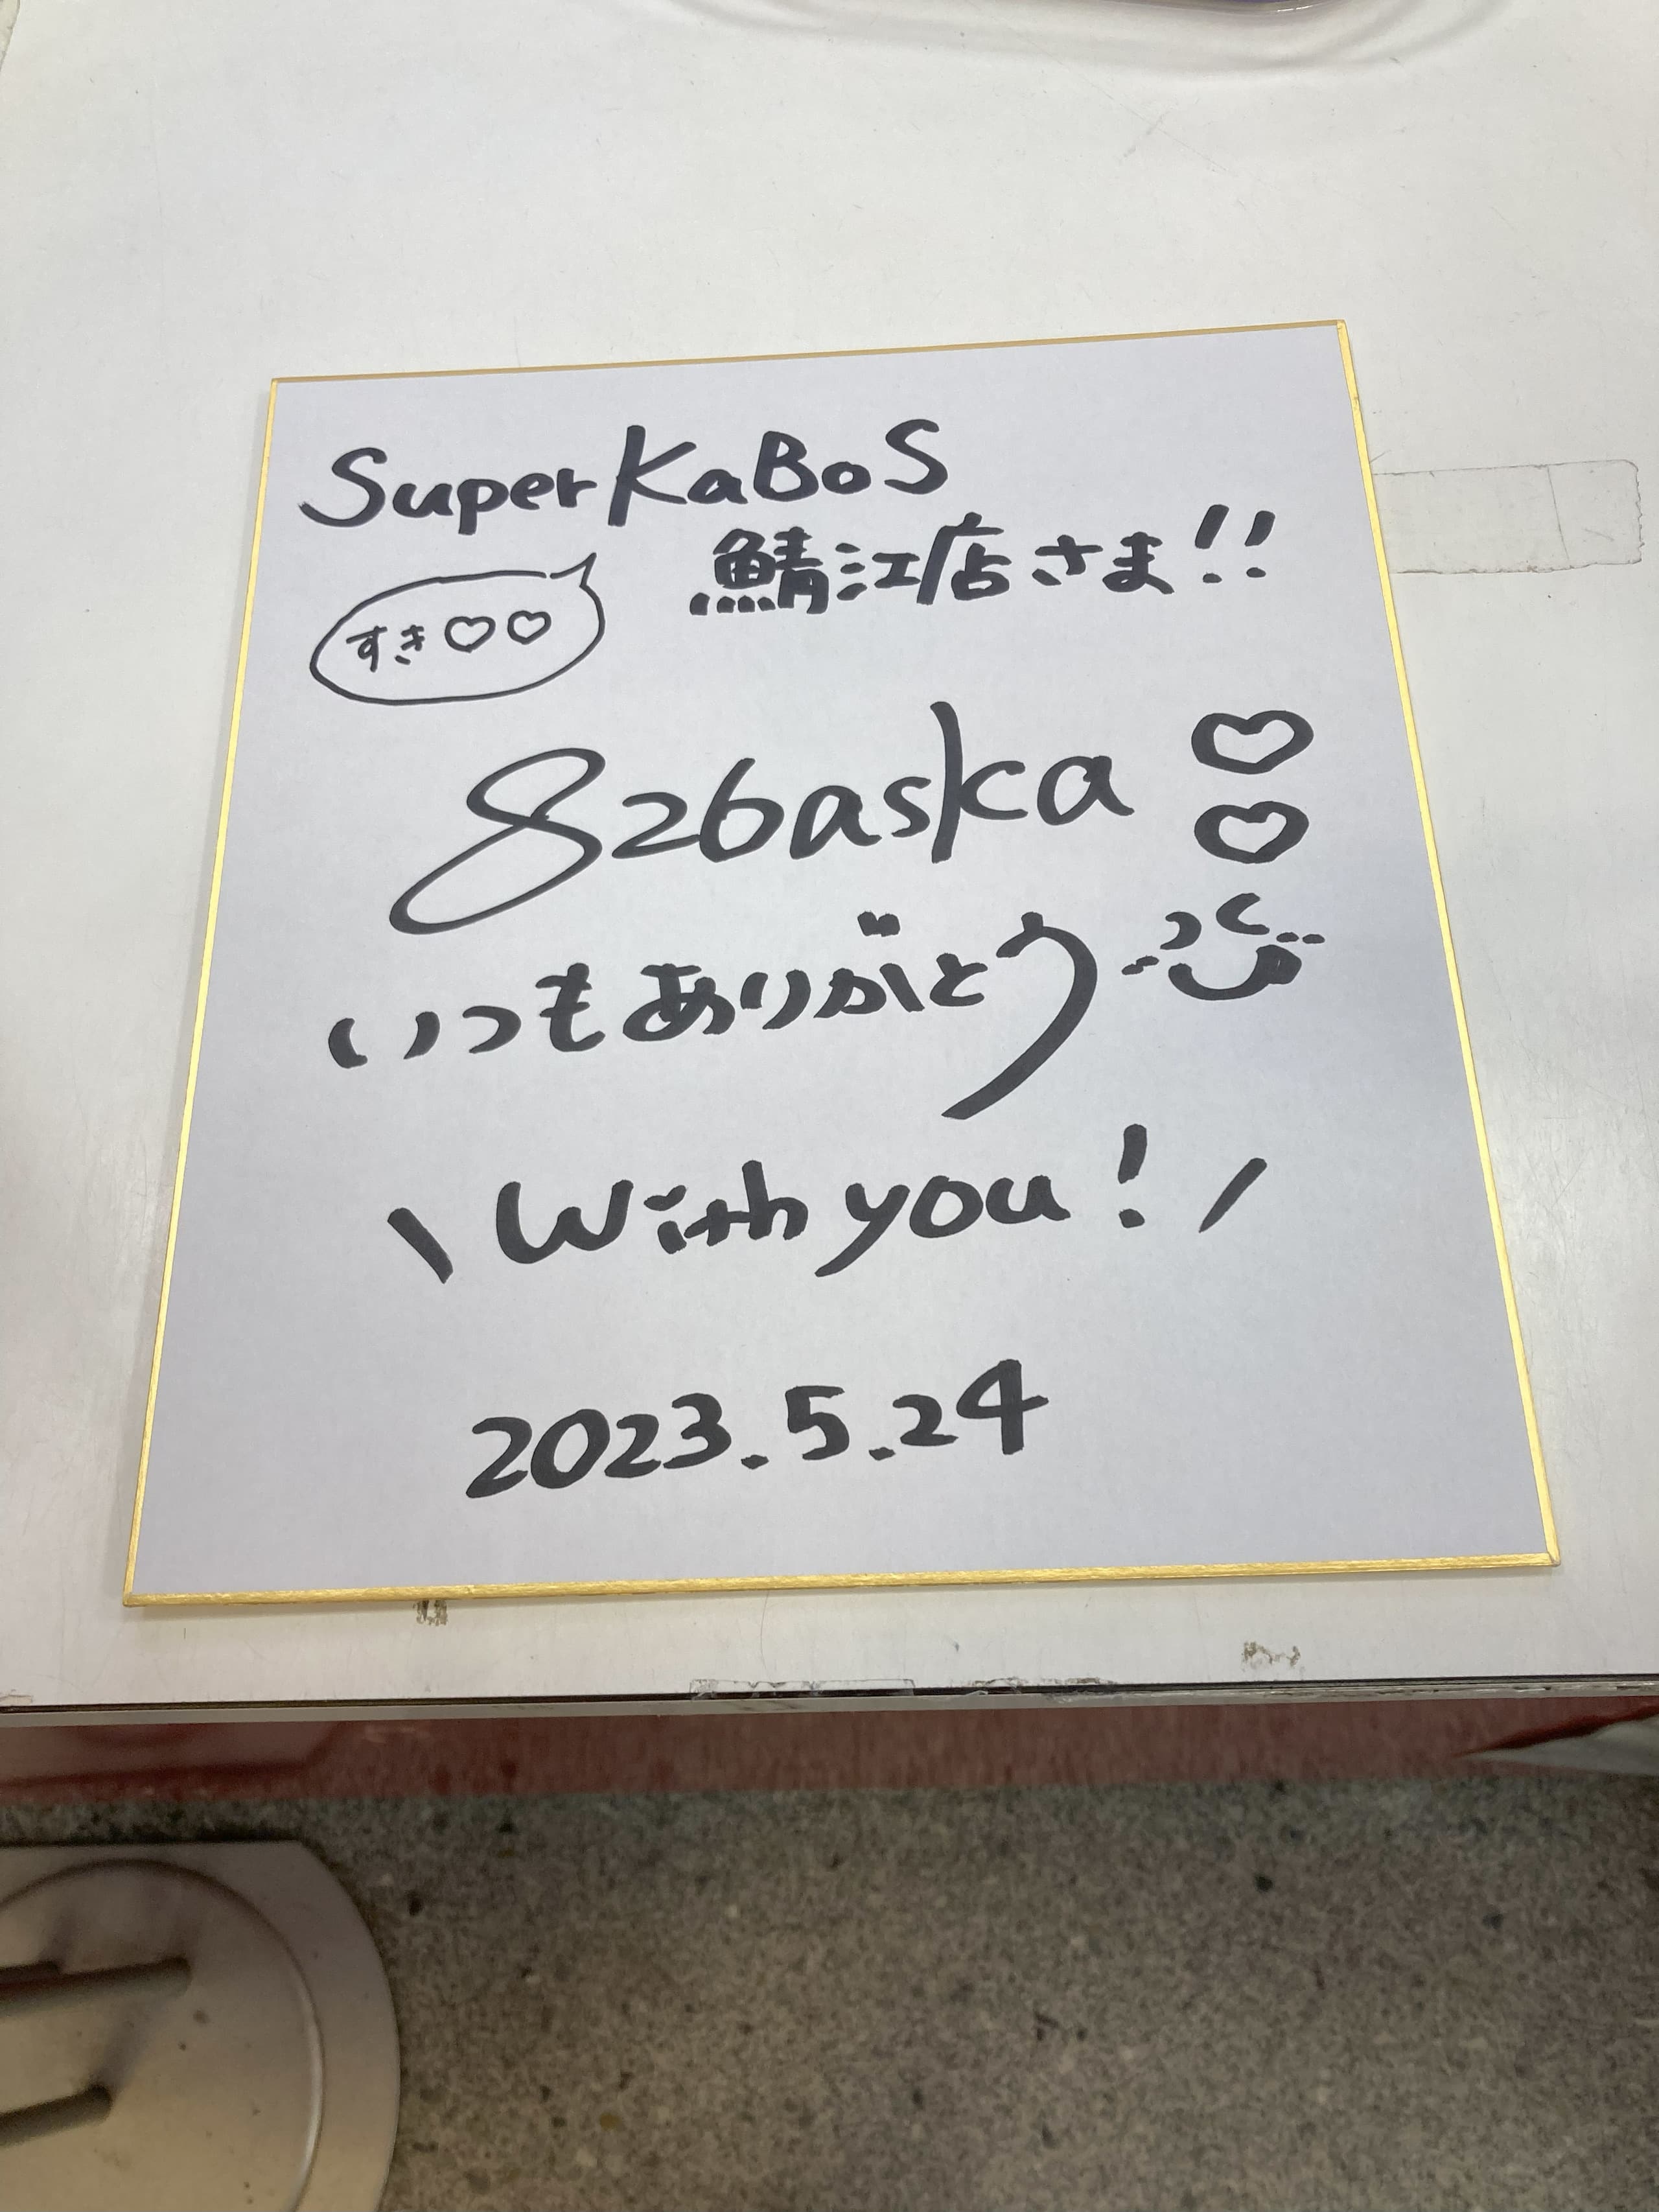 SuperKaBoS
鯖江店さま!!
すき♡♡
826aska ♡♡
いつもありがとう
\ With you! /
2023.5.24